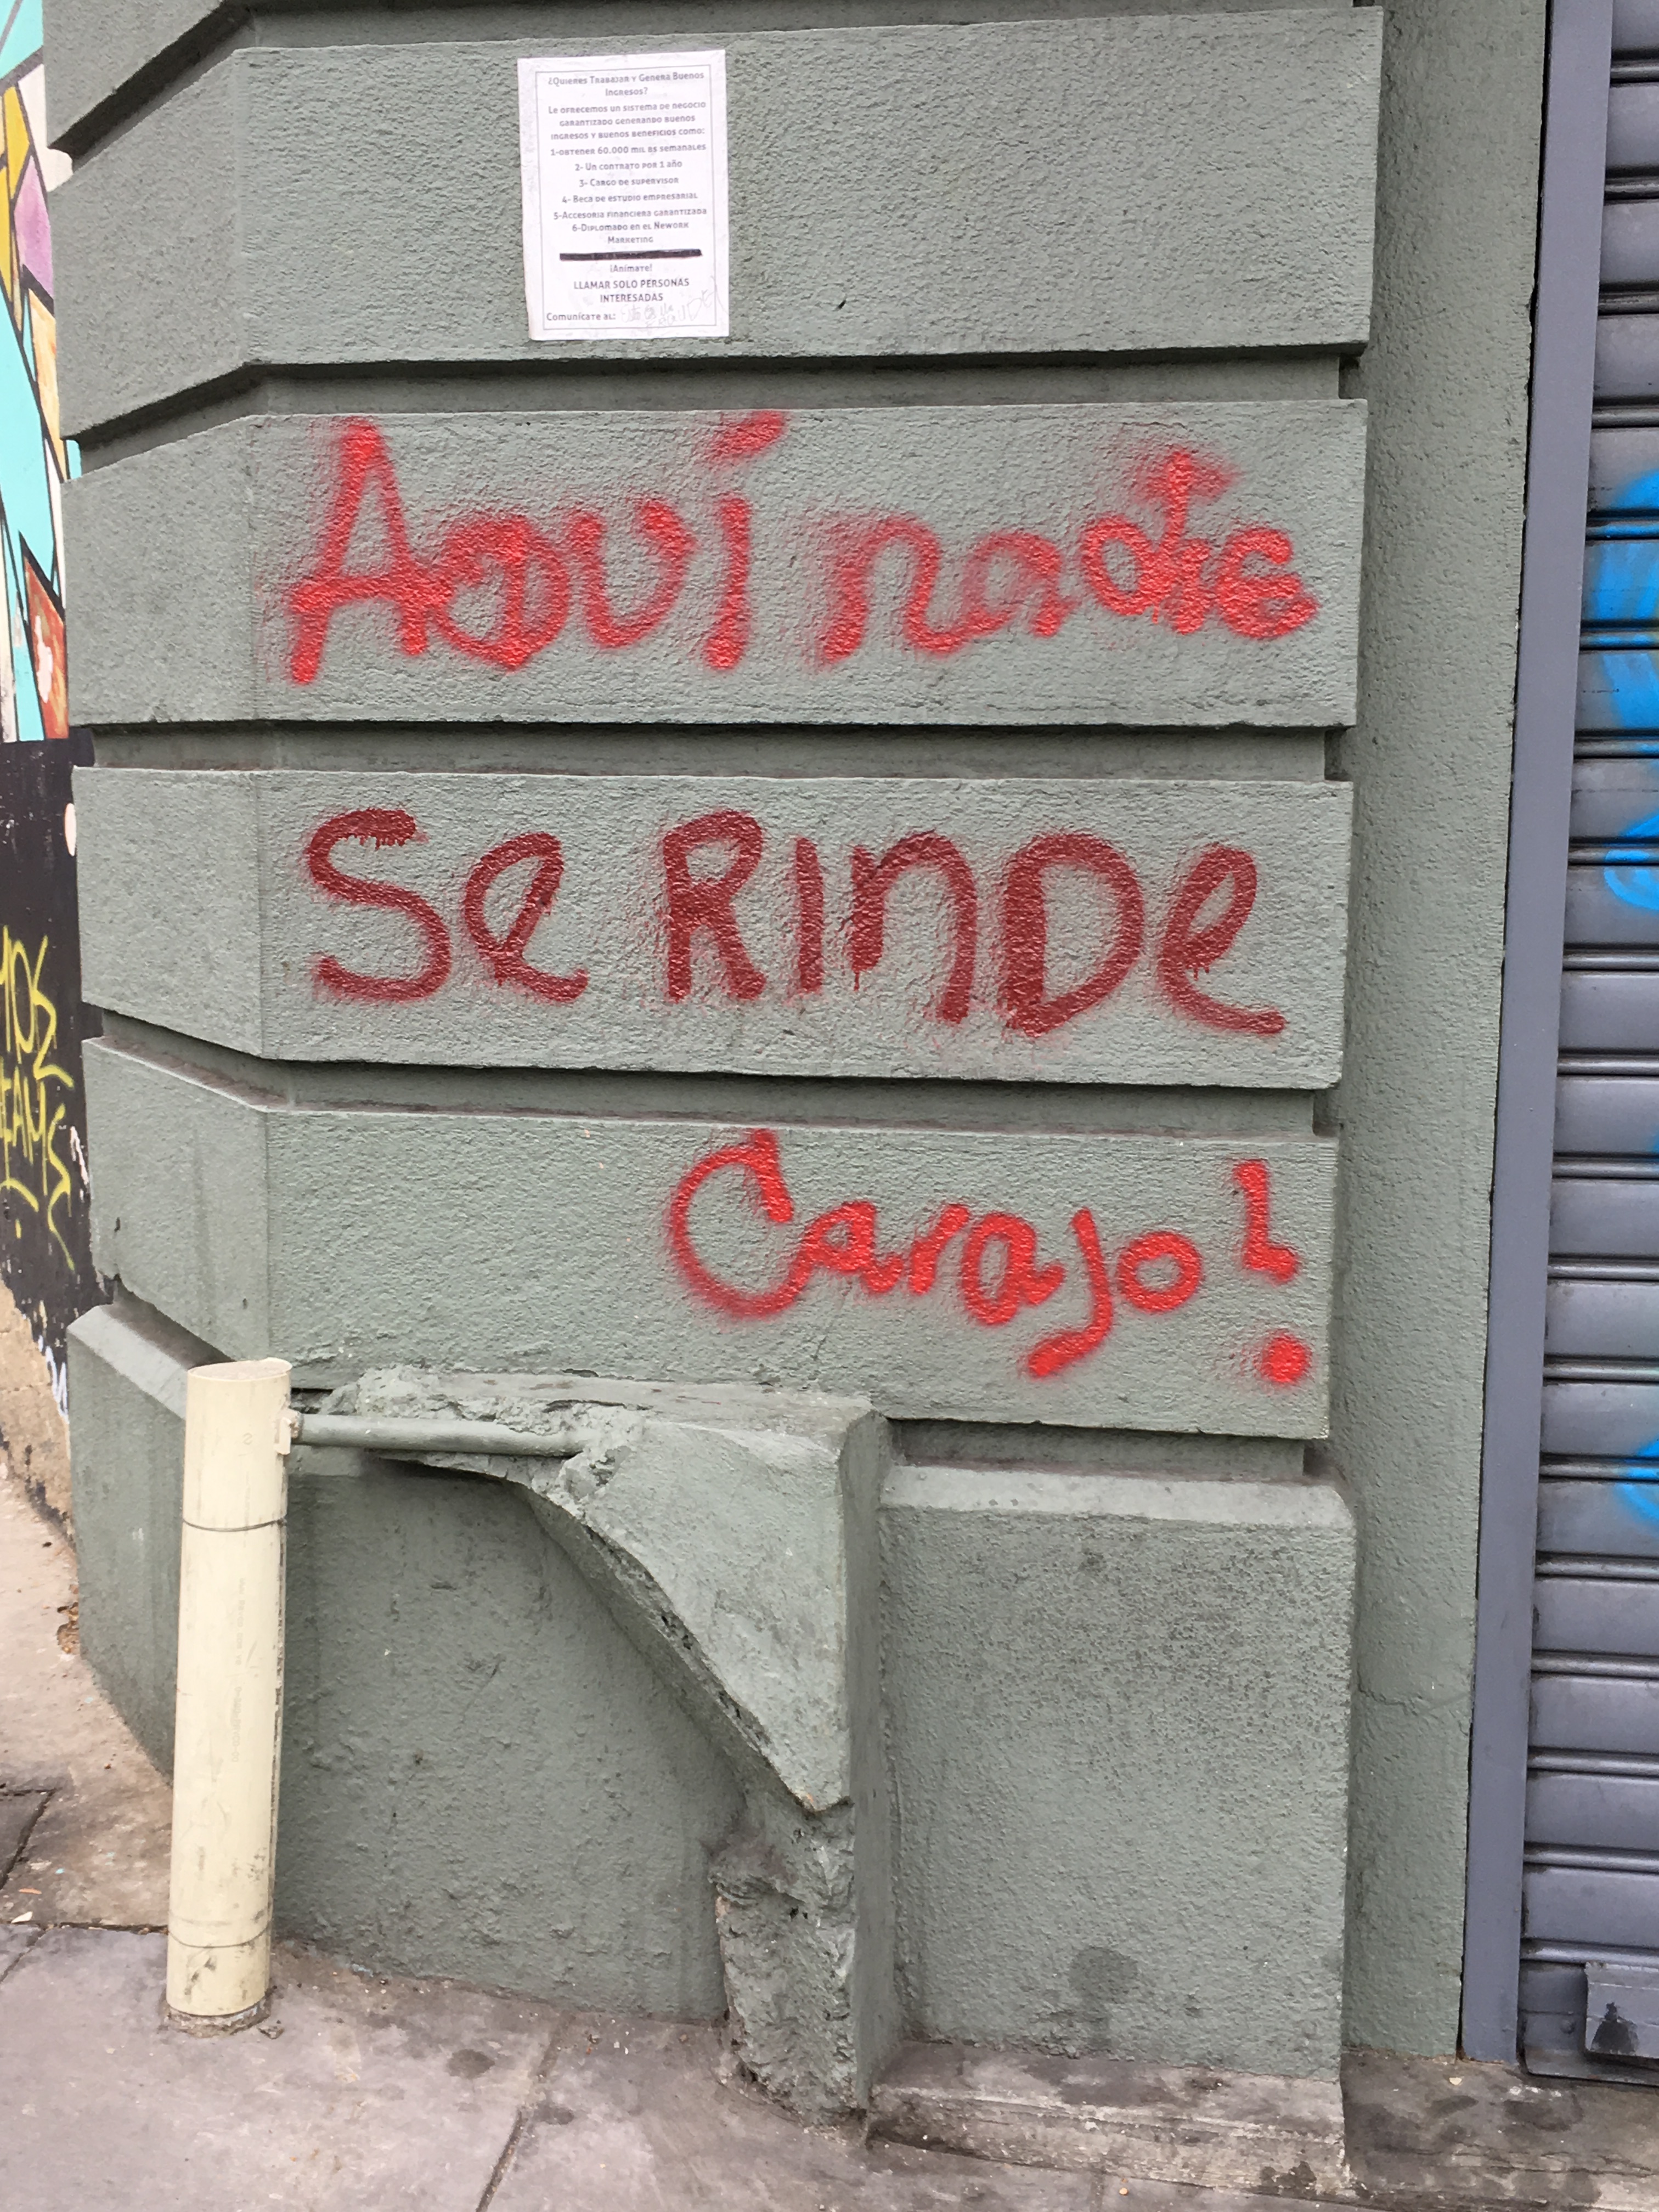 ¿Quieres Trabajar y Genera Buenos
Ingresos?
Le ofrecemos un sistema de negocio
garantizado generando buenos
ingresos y buenos beneficios como:
1-obtener 60.000 mil bs semanales
2- Un contrato por 1 año
3- Cargo de supervisor
4- Beca de estudio empresarial
5-Accesoria financiera garantizada
6-Diplomado en el Nework
Marketing
¡Anímate!
LLAMAR SOLO PERSONAS
INTERESADAS
Comunícate al:
Aquí nadie
Se RInDe
Carajo!